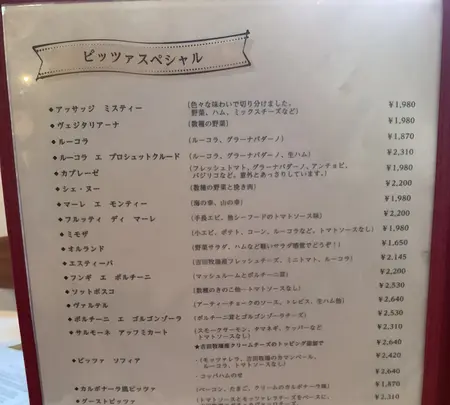 ピッツァスペシャル
◆アッサッジ ミスティー (色々な味わいで切り分けました。 ¥1,980
野菜、ハム、ミックスチーズなど)
◆ヴェジタリアーナ (数種の野菜) ¥1,980
◆ルーコラ (ルーコラ、グラーナパダーノ) ¥1,870
◆ルーコラ エ プロシュットクルード (ルーコラ、グラーナパダーノ、生ハム) ¥2,310
◆カプレーゼ (フレッシュトマト、グラーナパダーノ、アンチョビ、 ¥1,980
バジリコなど。意外とあっさりしています。)
◆シェ・ヌー (数種の野菜と挽き肉) ¥2,200
◆マーレ エ モンティー (海の幸、山の幸) ¥1,980
◆フルッティ ディ マーレ (手長エビ、他シーフードのトマトソース味) ¥2,200
◆ミモザ (小エビ、ポテト、コーン、ルーコラなど、トマトソースなし) ¥1,980
◆オルランド (野菜サラダ、ハムなど軽いサラダ感覚でどうぞ!) ¥1,650
◆エスティーバ (吉田牧場産フレッシュチーズ、ミニトマト、ルーコラ) ¥2,145
◆フンギ エ ポルチーニ (マッシュルームとポルチーニ茸) ¥2,200
◆ソットボスコ (数種のきのこ他…トマトソースなし) ¥2,530
◆ヴァルテル (アーティーチョークのソース、トレビス、生ハム他) ¥2,640
◆ポルチーニ エ ゴルゴンゾーラ (ポルチーニ茸とゴルゴンゾーラチーズ) ¥2,530
◆サルモーネ アッフミカート (スモークサーモン、タマネギ、ケッパーなど ¥2,310
トマトソースなし)
★吉田牧場産クリームチーズのトッピング追加で ¥2,640
・ピッツァ ソフィア ・(モッツァレラ、吉田牧場のカマンベール、 ¥2,420
ルーコラ、トマトソースなし)
・コッパハムのせ ¥2,640
◆カルボナーラ風ピッツァ (ベーコン、たまご、クリームのカルボナーラ風) ¥1,870
◆グーストピッツァ (トマトソースとモッツァレラチーズをベースに、 ¥2,310